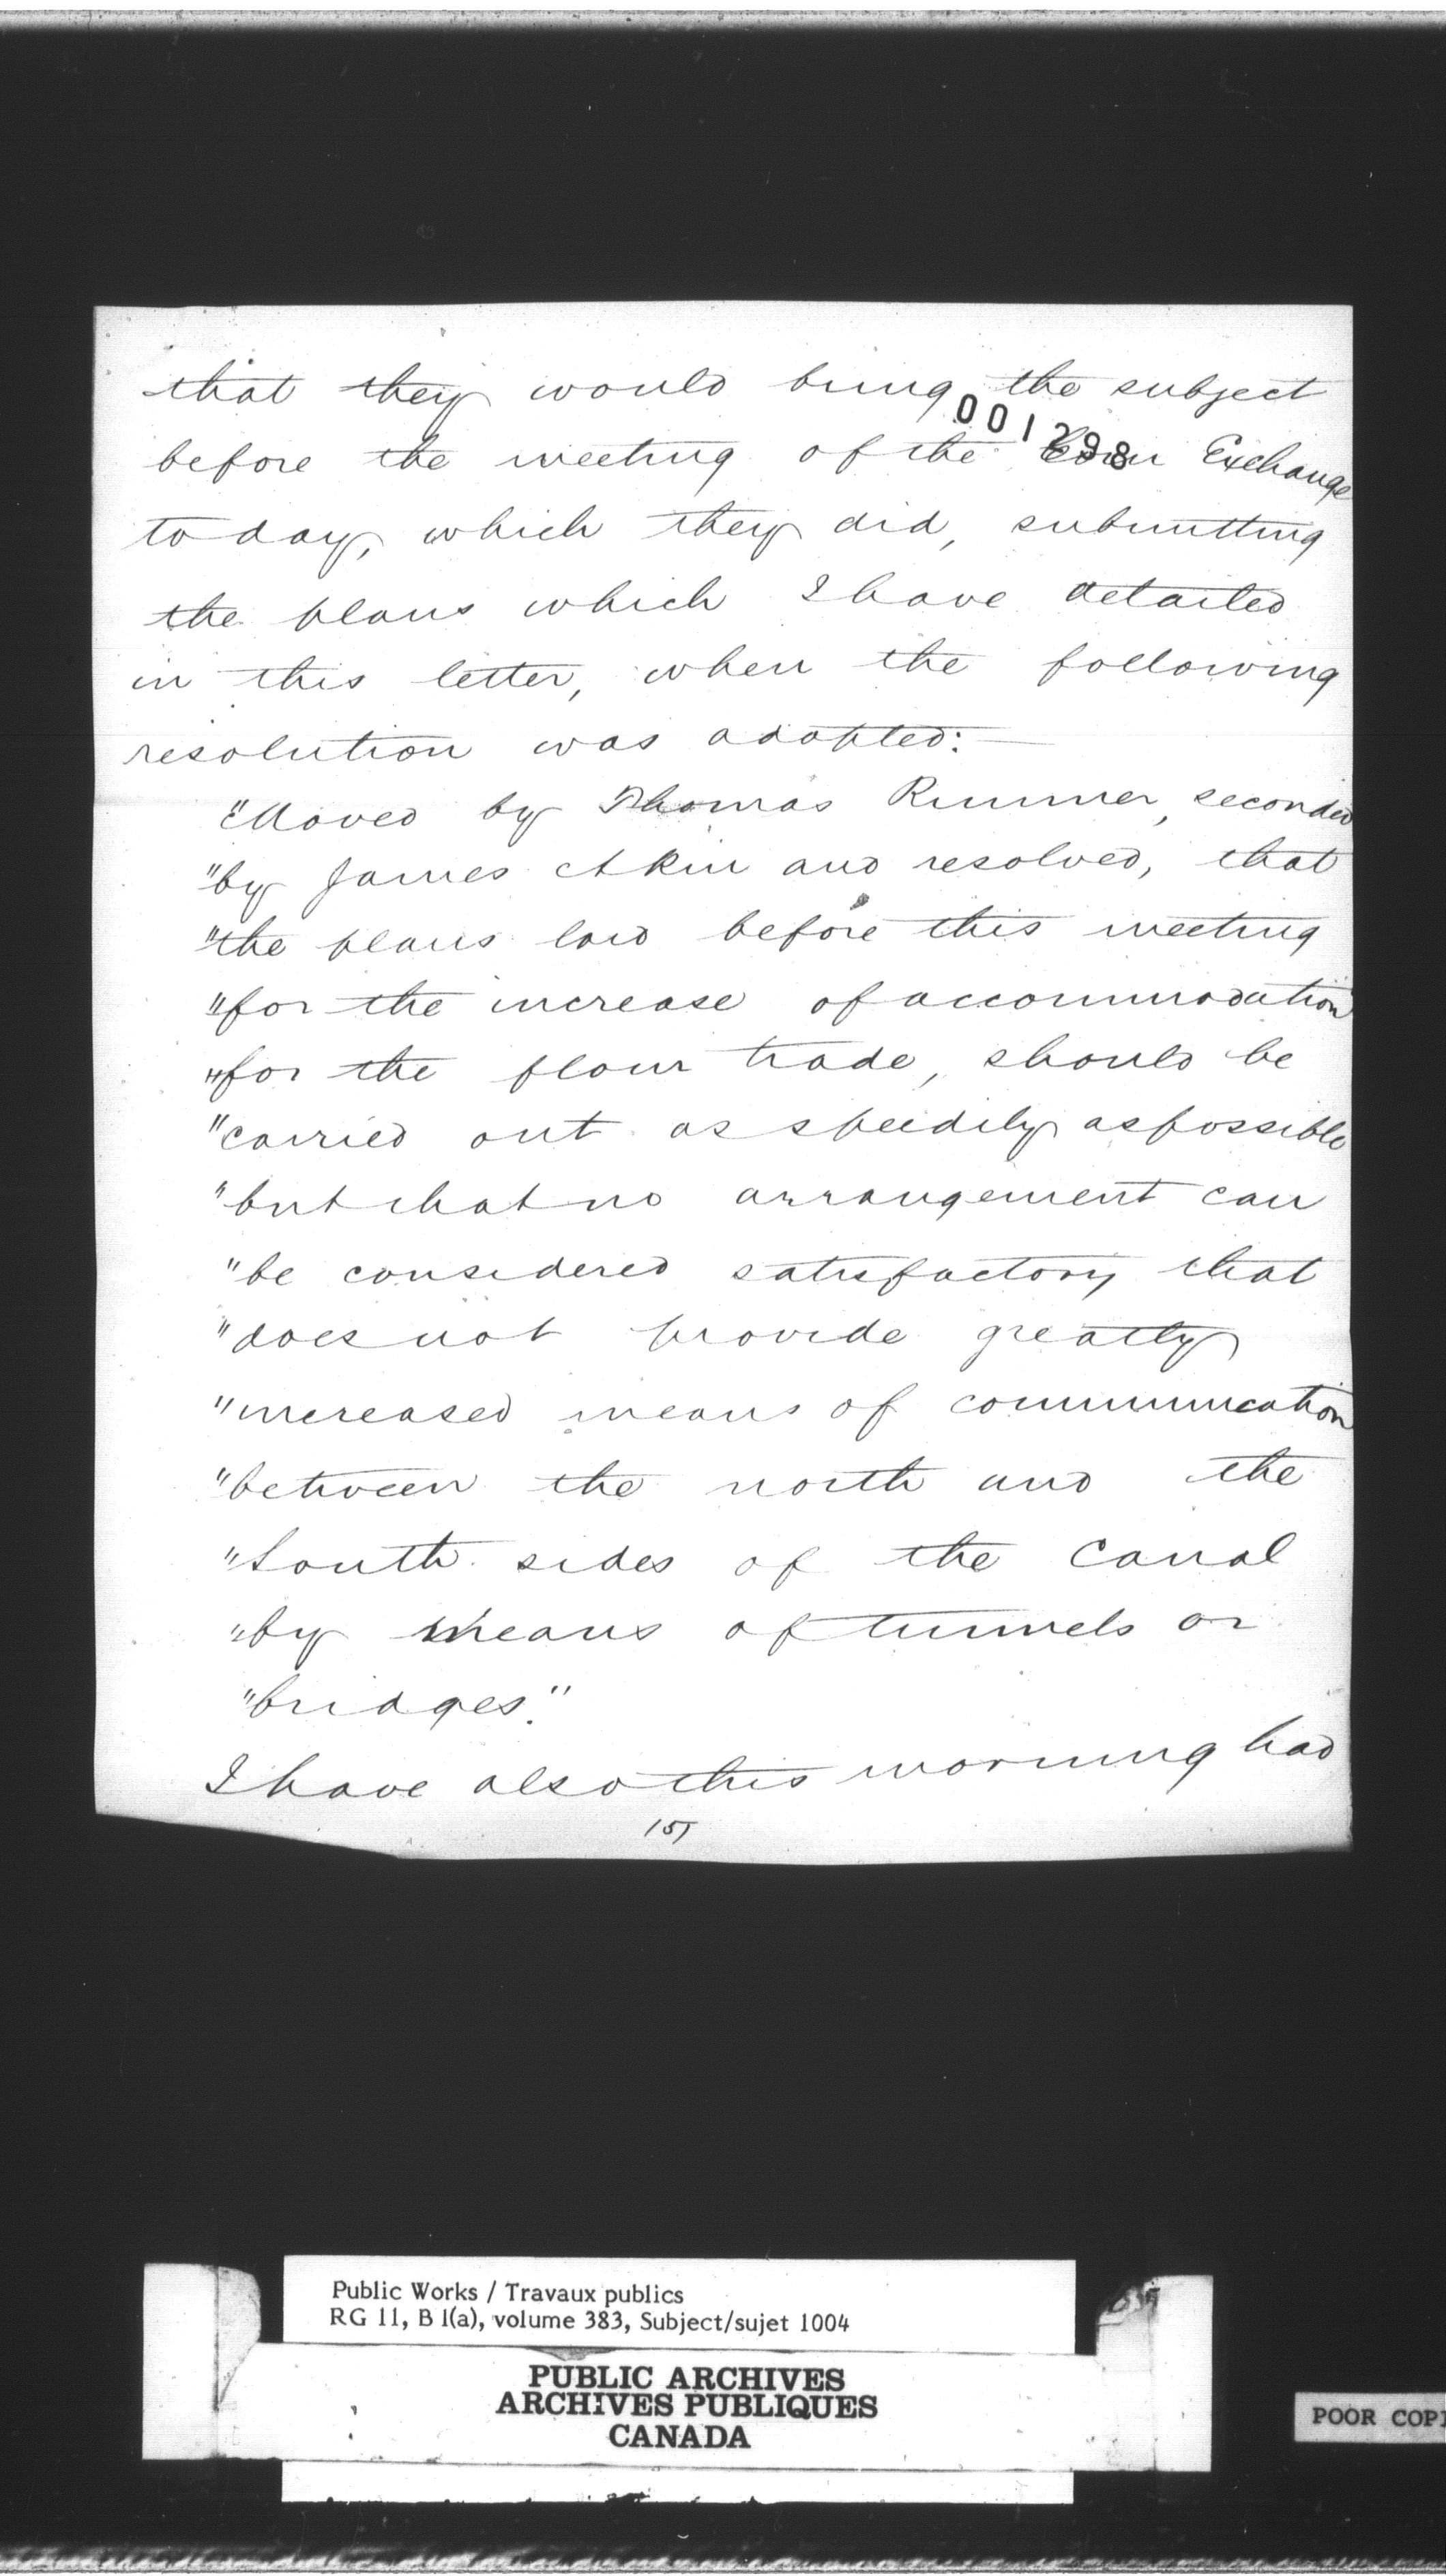 that they would bring the subject
001298
before the meeting of the Corn Exchange
to day, which they did, submitting
the plans which I have detailed
in this letter, when the following
resolution was adopted:—
"Moved by Thomas Rimmer, seconded
"by James Akin and resolved, that
"the plans laid before this meeting
"for the increase of accommodation
"for the flour trade, should be
"carried out as speedily as possible
"but that no arrangement can
"be considered satisfactory that
"does not provide greatly
"increased means of communication
"between the north and the
"South sides of the Canal
"by means of tunnels or
"bridges."
I have also this morning had
151
Public Works / Travaux publics
RG 11, B 1(a), volume 383, Subject/sujet 1004
PUBLIC ARCHIVES
ARCHIVES PUBLIQUES
CANADA
POOR COPI